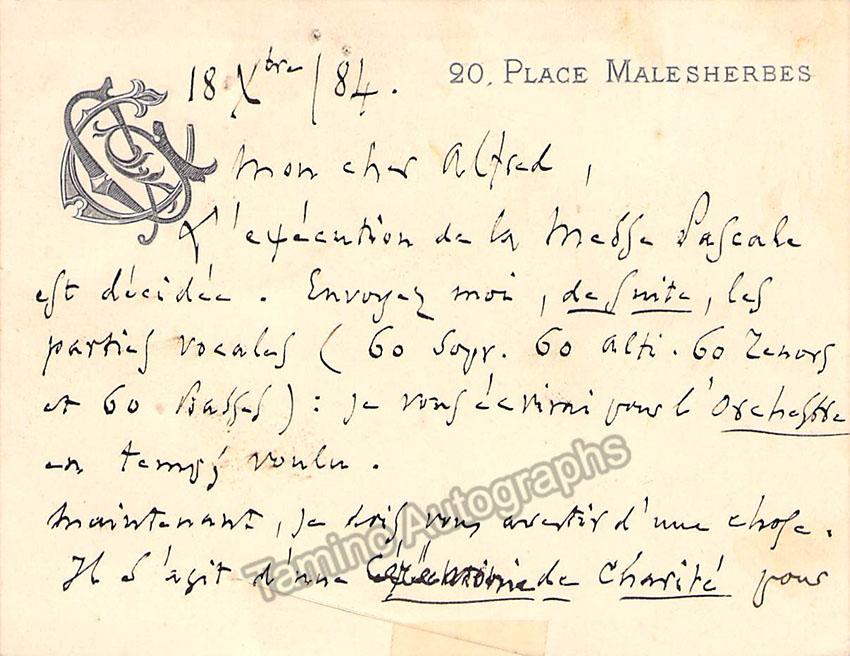 18 Xbre / 84.
20, PLACE MALESHERBES
CG
Mon cher Alfred,
L'exécution de la Messe Pascale
est décidée. Envoyez moi, de suite, les
parties vocales (60 Sopr. 60 Alti. 60 Tenors
et 60 Basses) : je vous écrirai pour l'Orchestre
en temps voulu.
Maintenant, je dois vous avertir d'une chose.
Il s'agit d'une de Charité pour
Tamino Autographs